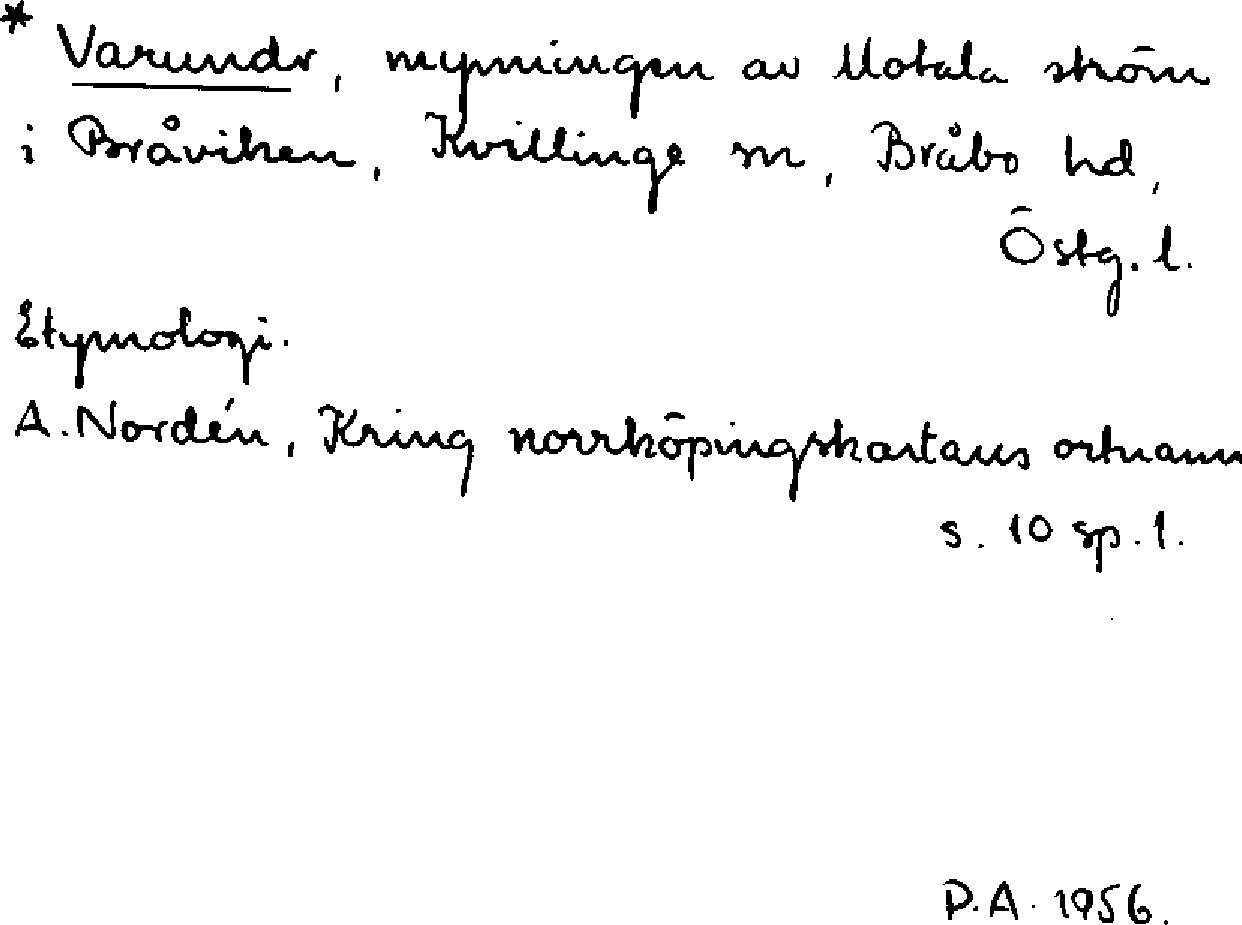 * Varundr, mynningen av Motala ström
i Bråviken, Kvillinge sn, Bråbo hd,
Östg. l.
Etymologi.
A. Nordén, Kring norrköpingskartans ortnamn
s. 10 sp. 1.
P.A. 1956.